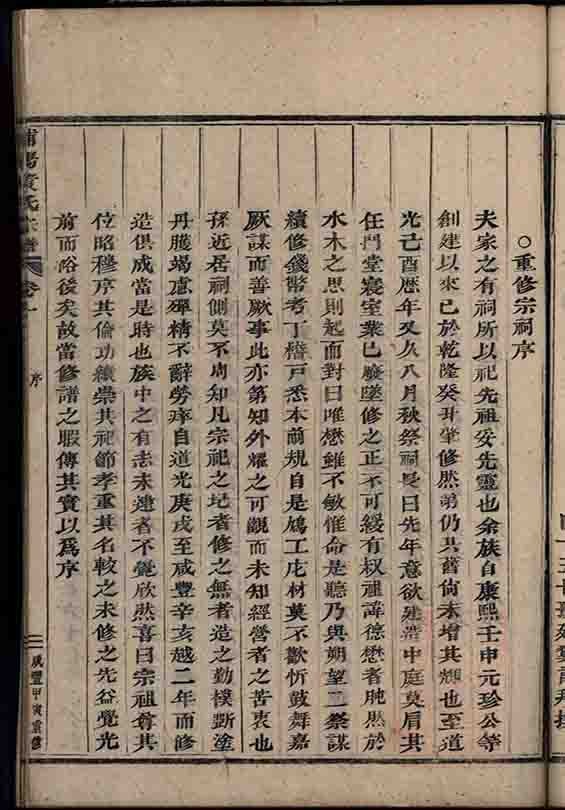 ○重修宗祠序
夫家之有祠所以祀先祖妥先靈也余族自康熙壬申元珍公等
創建以來已於乾隆癸丑肇修然第仍其舊尚未增其輝也至道
光己酉曆年又久八月秋祭祠長曰先年意欲建造中庭莫肩其
任門堂寢室業已廢墜修之正不可緩有權祖諱德懋者肫然於
水木之思則起而對曰唯懋雖不敏惟命是聽乃與朔望二祭謀
續修錢幣考丁糧戶悉本前規自是鳩工庀材莫不歡忻鼓舞嘉
厥謀而善厥事此亦第知外耀之可觀而未知經營者之苦衷也
孫近居祠側莫不周知凡宗祀之圮者修之無者造之勤樸斲塗
丹雘竭慮殫精不辭勞瘁自道光庚戌至咸豐辛亥越二年而修
造俱成當是時也族中之有志未逮者不覺欣然喜曰宗祖奠其
位昭穆序其倫功績崇其祀節孝重其名較之未修之先益覺光
前而裕後矣故當修譜之暇傳其實以爲序
浦陽黃氏宗譜
卷一
序
咸豐甲寅重修